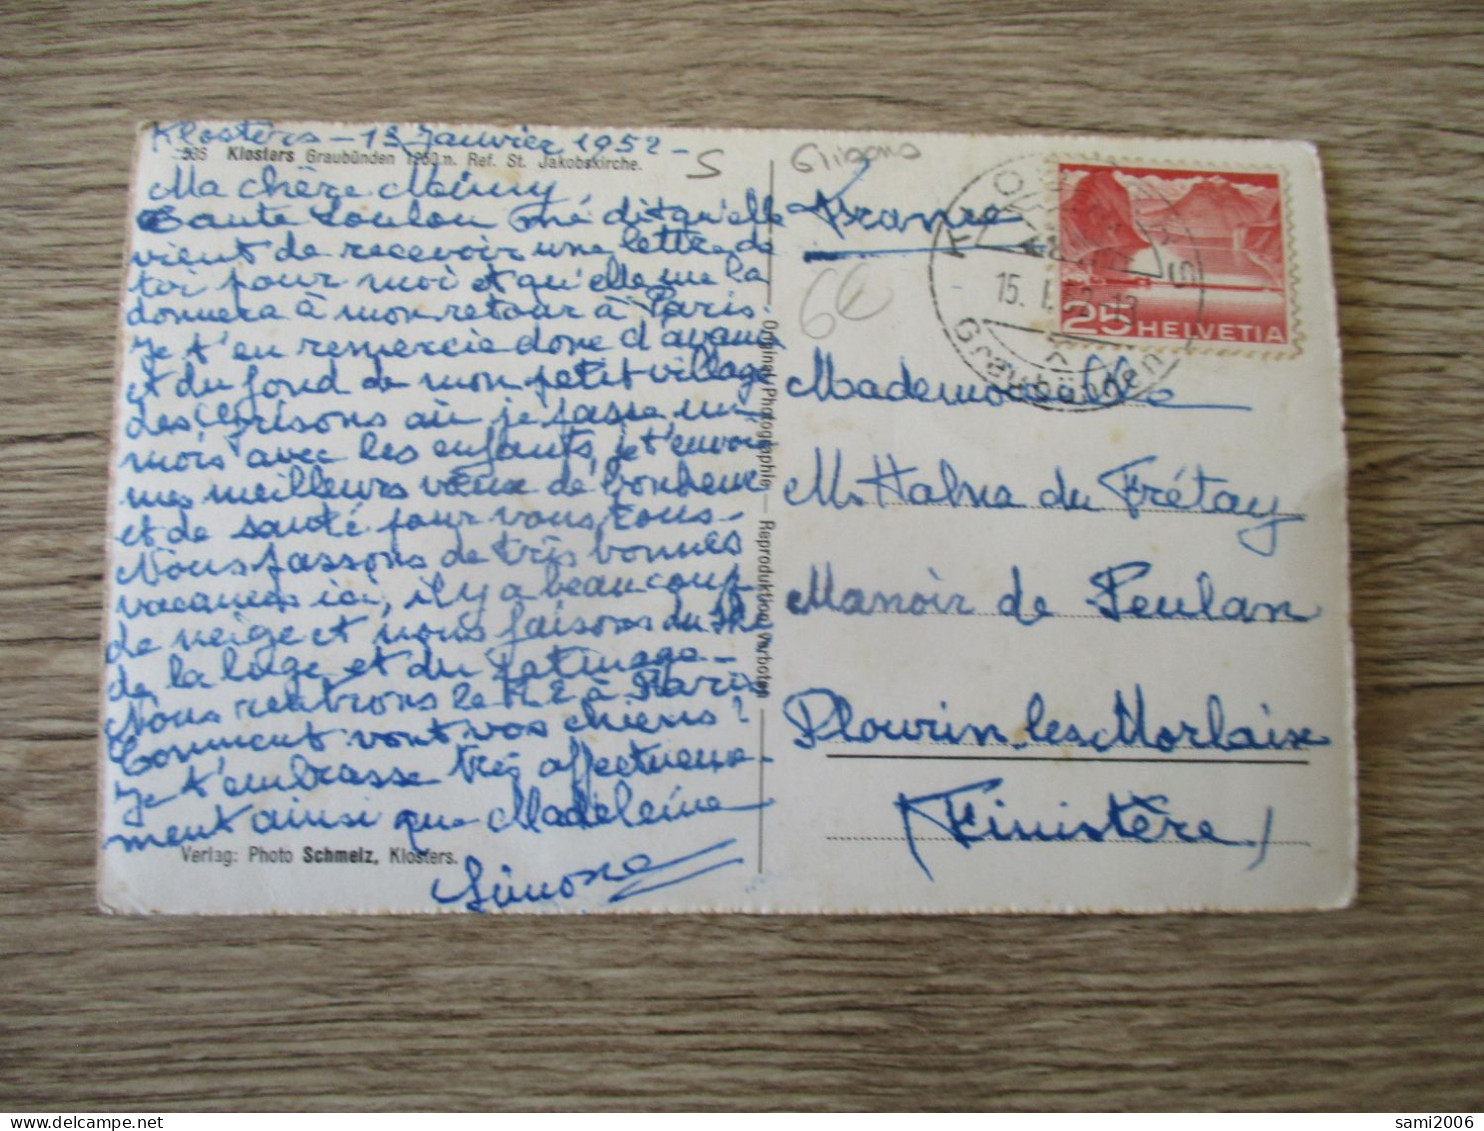 Klosters - 13 Janvier 1952 -
536 Klosters Graubünden 1250 m. Ref. St. Jakobskirche.
Ma chère Mimy
Tante Loulou m'a dit qu'elle
vient de recevoir une lettre de
toi pour moi et qu'elle me la
donnera à mon retour à Paris.
Je t'en remercie donc d'avance
et du fond de mon petit village
des Grisons où je passe un
mois avec les enfants, je t'envoie
mes meilleurs vœux de bonheur
et de santé pour vous tous -
Nous passons de très bonnes
vacances ici, il y a beaucoup
de neige et nous faisons du ski
de la luge et du patinage -
Nous rentrons le 12 à Paris
Comment vont vos chiens ?
Je t'embrasse très affectueuse-
ment ainsi que Madeleine
Simone
Verlag: Photo Schmelz, Klosters.
Original-Photographie — Reproduktion verboten
S
Grisons
6€
France
KLOSTERS
15. I. 52
Graubünden
25 HELVETIA
Mademoiselle
M. Halna du Frétay
Manoir de Penlan
Plourin les Morlaix
(Finistère)
sami2006